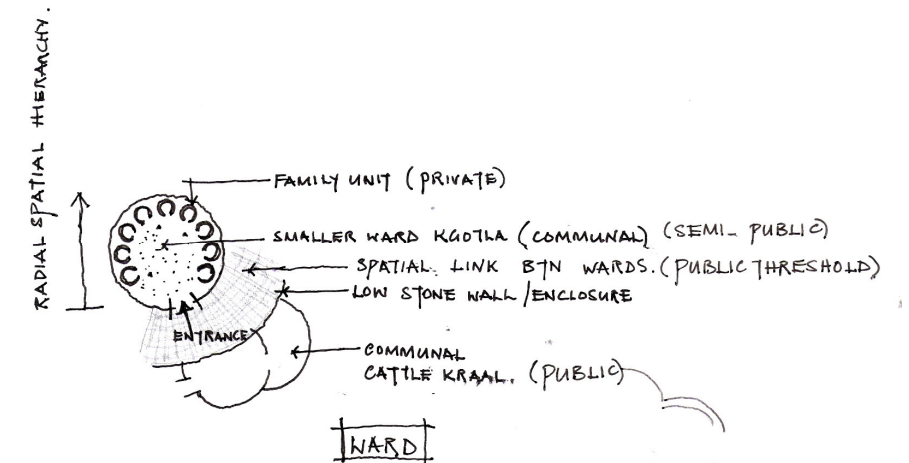 RADIAL SPATIAL HIERARCHY.
FAMILY UNIT (PRIVATE)
SMALLER WARD KGOTLA (COMMUNAL) (SEMI-PUBLIC)
SPATIAL LINK BTN WARDS. (PUBLIC THRESHOLD)
LOW STONE WALL/ENCLOSURE
ENTRANCE
COMMUNAL
CATTLE KRAAL. (PUBLIC)
WARD